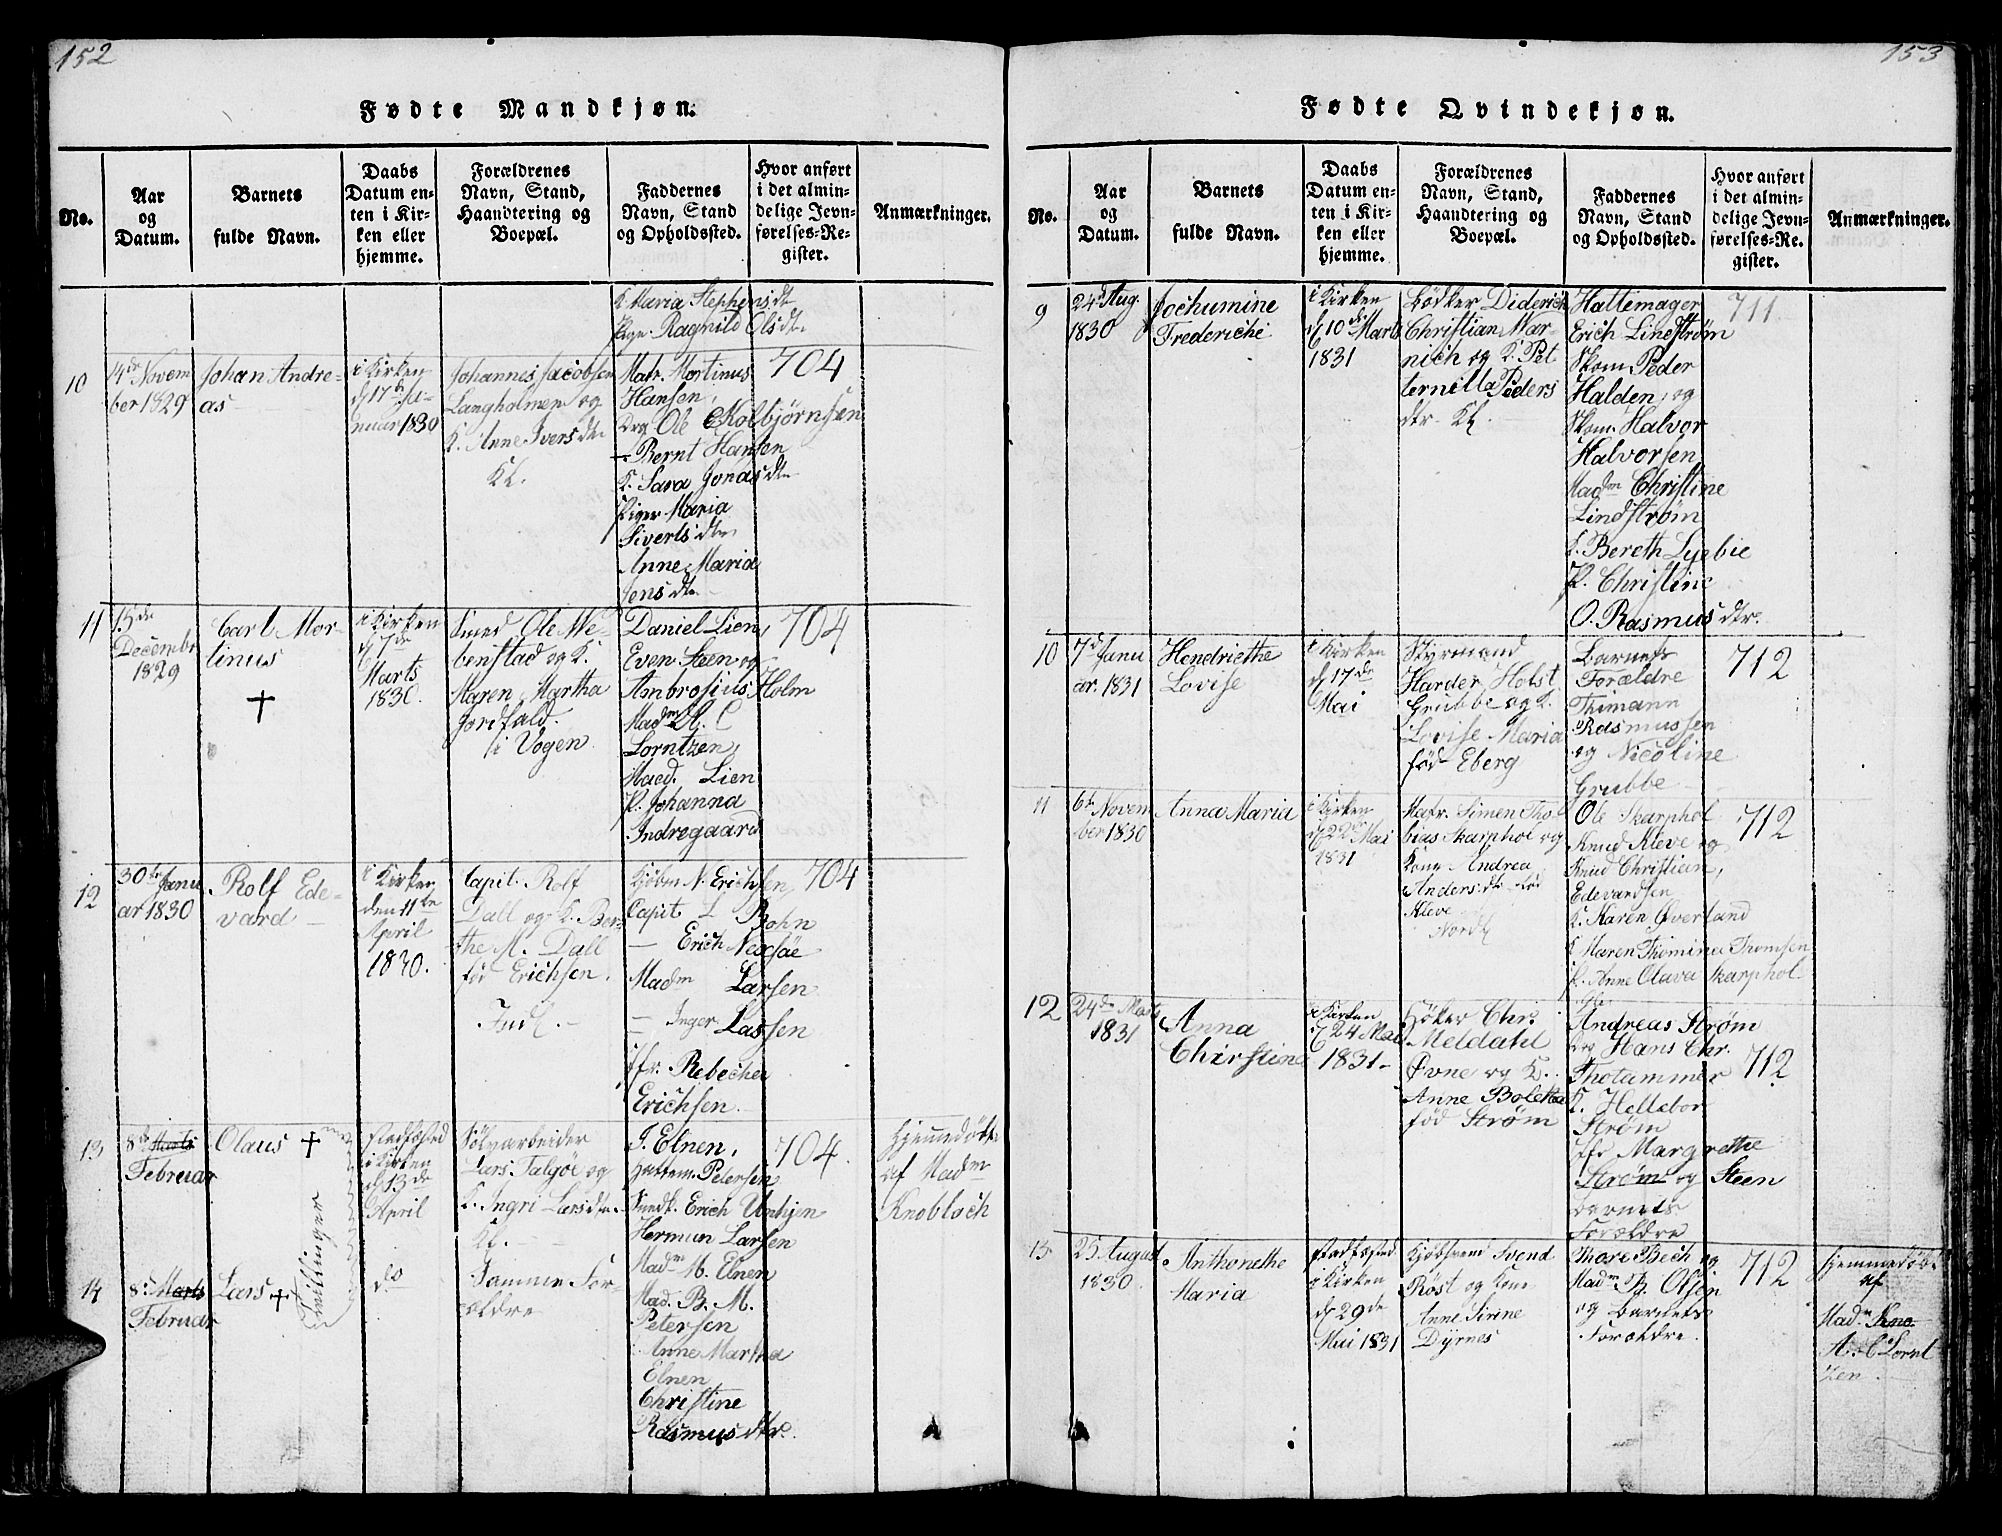 152
Fødte Mandkjøn.
No.
Aar
og
Datum.
Barnets
fulde Navn.
Daabs
Datum en-
ten i Kir-
ken eller
hjemme.
Forældrenes
Navn, Stand,
Haandtering og
Boepæl.
Faddernes
Navn, Stand
og Opholdssted.
Hvor anført
i det almin-
delige Jevn-
førelses-Re-
gister.
Anmærkninger.
K. Maria Stephensdtr
Pige Ragnild Olsdtr
10
14de Novem
ber 1829
Johan Andre-
as
i Kirken
d 17de Ja-
nuar 1830
Johannes Jacobsen
Langholmen og
K. Anne Iversdtr
Kl.
Matr. Mortinus
Hansen,
Drg Ole Kolbjørnsen
- Bernt Hansen
K. Sara Jonasdtr
Piger Maria
Sivertsdtr
Anne Maria
Jensdtr
704
11
15de
Decembr
1829
Carl Mor-
tinus
i Kirken
d 7de
Marts
1830.
Smed Ole We-
benstad og K.
Maren Martha
Jordfald.
i Vogen
Daniel Lien,
Even Steen og
Ambrosius Holm
Madm A. C
Lorntzen,
Mad. Lien
P. Johanna
Indregaard
704
12
30te Janu
ar 1830
Rolf Ede-
vard
i Kirken
den 11te
April
1830.
Capit. Rolf
Dall og K. Ber-
the M. Dall
fød Erichsen.
Indl.
Kjøbm N. Erichsen,
Capit L Bohn
- Erich Nexsøe
Madm Larsen
- Inger Lassen
Jfr. Rebecha
Erichsen.
704
13
8de Marts
Februar
Olaus
Tvillinger
stadfæsted
i Kirken
d 13de
April
Sølvarbeider
Lars Talgøe og
K. Ingri Larsdtr
Kl.
J. Elnen,
Hattem. Petersen
Sundk. Erich Unhjen
Herman Larsen
Madm M. Elnen
Mad. B. M.
Petersen
Anne Martha
Elnen
Christine
Rasmusdtr.
704.
Hjemmedøbt
af Madm
Knobloch
14
8d Marts
Februar
Lars
do
Samme For-
ældre
153
Fødte Qvindekjøn.
No.
Aar
og
Datum.
Barnets
fulde Navn.
Daabs
Datum en-
ten i Kir-
ken eller
hjemme.
Forældrenes
Navn, Stand,
Haandtering og
Boepæl.
Faddernes
Navn, Stand
og Opholdssted.
Hvor anført
i det almin-
delige Jevn-
førelses-Re-
gister.
Anmærkninger.
9
24d Aug.
1830
Jochumine
Frederiche
i Kirken
d 10de Marts
1831
Bödker Diderich
Christian War-
nich og K. Pet
ternilla Peders
dtr. Kl.
Hattemager
Erich Lindstrøm
Skom Peder
Halden, og
Skom. Halvor
Halvorsen
Madm Christine
Lindstrøm
K. Bereth Lyebie
P. Christine
O. Rasmusdtr.
711
10
7d Janu
ar. 1831
Hendriethe
Lovise
i Kirken
d 17de
Mai
Styrmand
Harder Holst
Grubbe og K.
Lovise Maria
fød Eberg
Barnets
Forældre
Thimann
Rasmussen
og Nicoline
Grubbe
712
11
6te Novem
ber 1830
Anna Maria
i Kirken
d 22d Mai
1831
Matr. Simen Tho
bias Skarphol og
Kone Andrea
Andersdtr fød
Kleve
Nordl
Ole Skarphol
Knud Kleve og
Knud Christian,
Edevardsen
K. Karen Øverland
K Maren Thomina Thomsen
P. Anne Olava Skarphol
712
12
24de Marts
1831
Anna
Christine
i Kirken
d 24 Mai
1831
Höker Chr.
Meldahl
Øvne og K.
Anne Boletta
fød Strøm
Andreas Strøm
Drg Hans Chr.
Thotammer
K. Hellebor
Strøm
Jfr Margrethe
Strøm og Steen
Barnets
Forældre
712
13
25 August
1830
Anthonethe
Maria
stadfæsted
i Kirken
d 29de
Mai 1831
Kjøbsvend Svend
Röst og Kone
Anne Sirine
Dyrnes
Thore Bech og
Madm B. Olsen
og Barnets
Forældre.
712
Hjemmedøbt
af
Madm Kno
A. C Lornt
zen